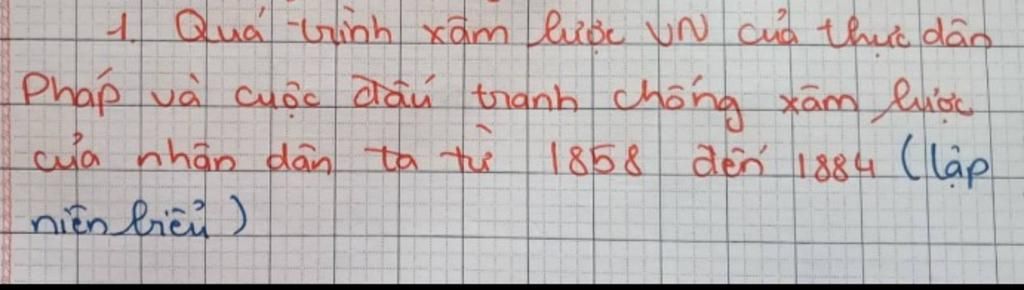 1. Quá trình xâm lược VN của thực dân
Pháp và cuộc đấu tranh chống xâm lược
của nhân dân ta từ 1858 đến 1884 (lập
niên biểu)